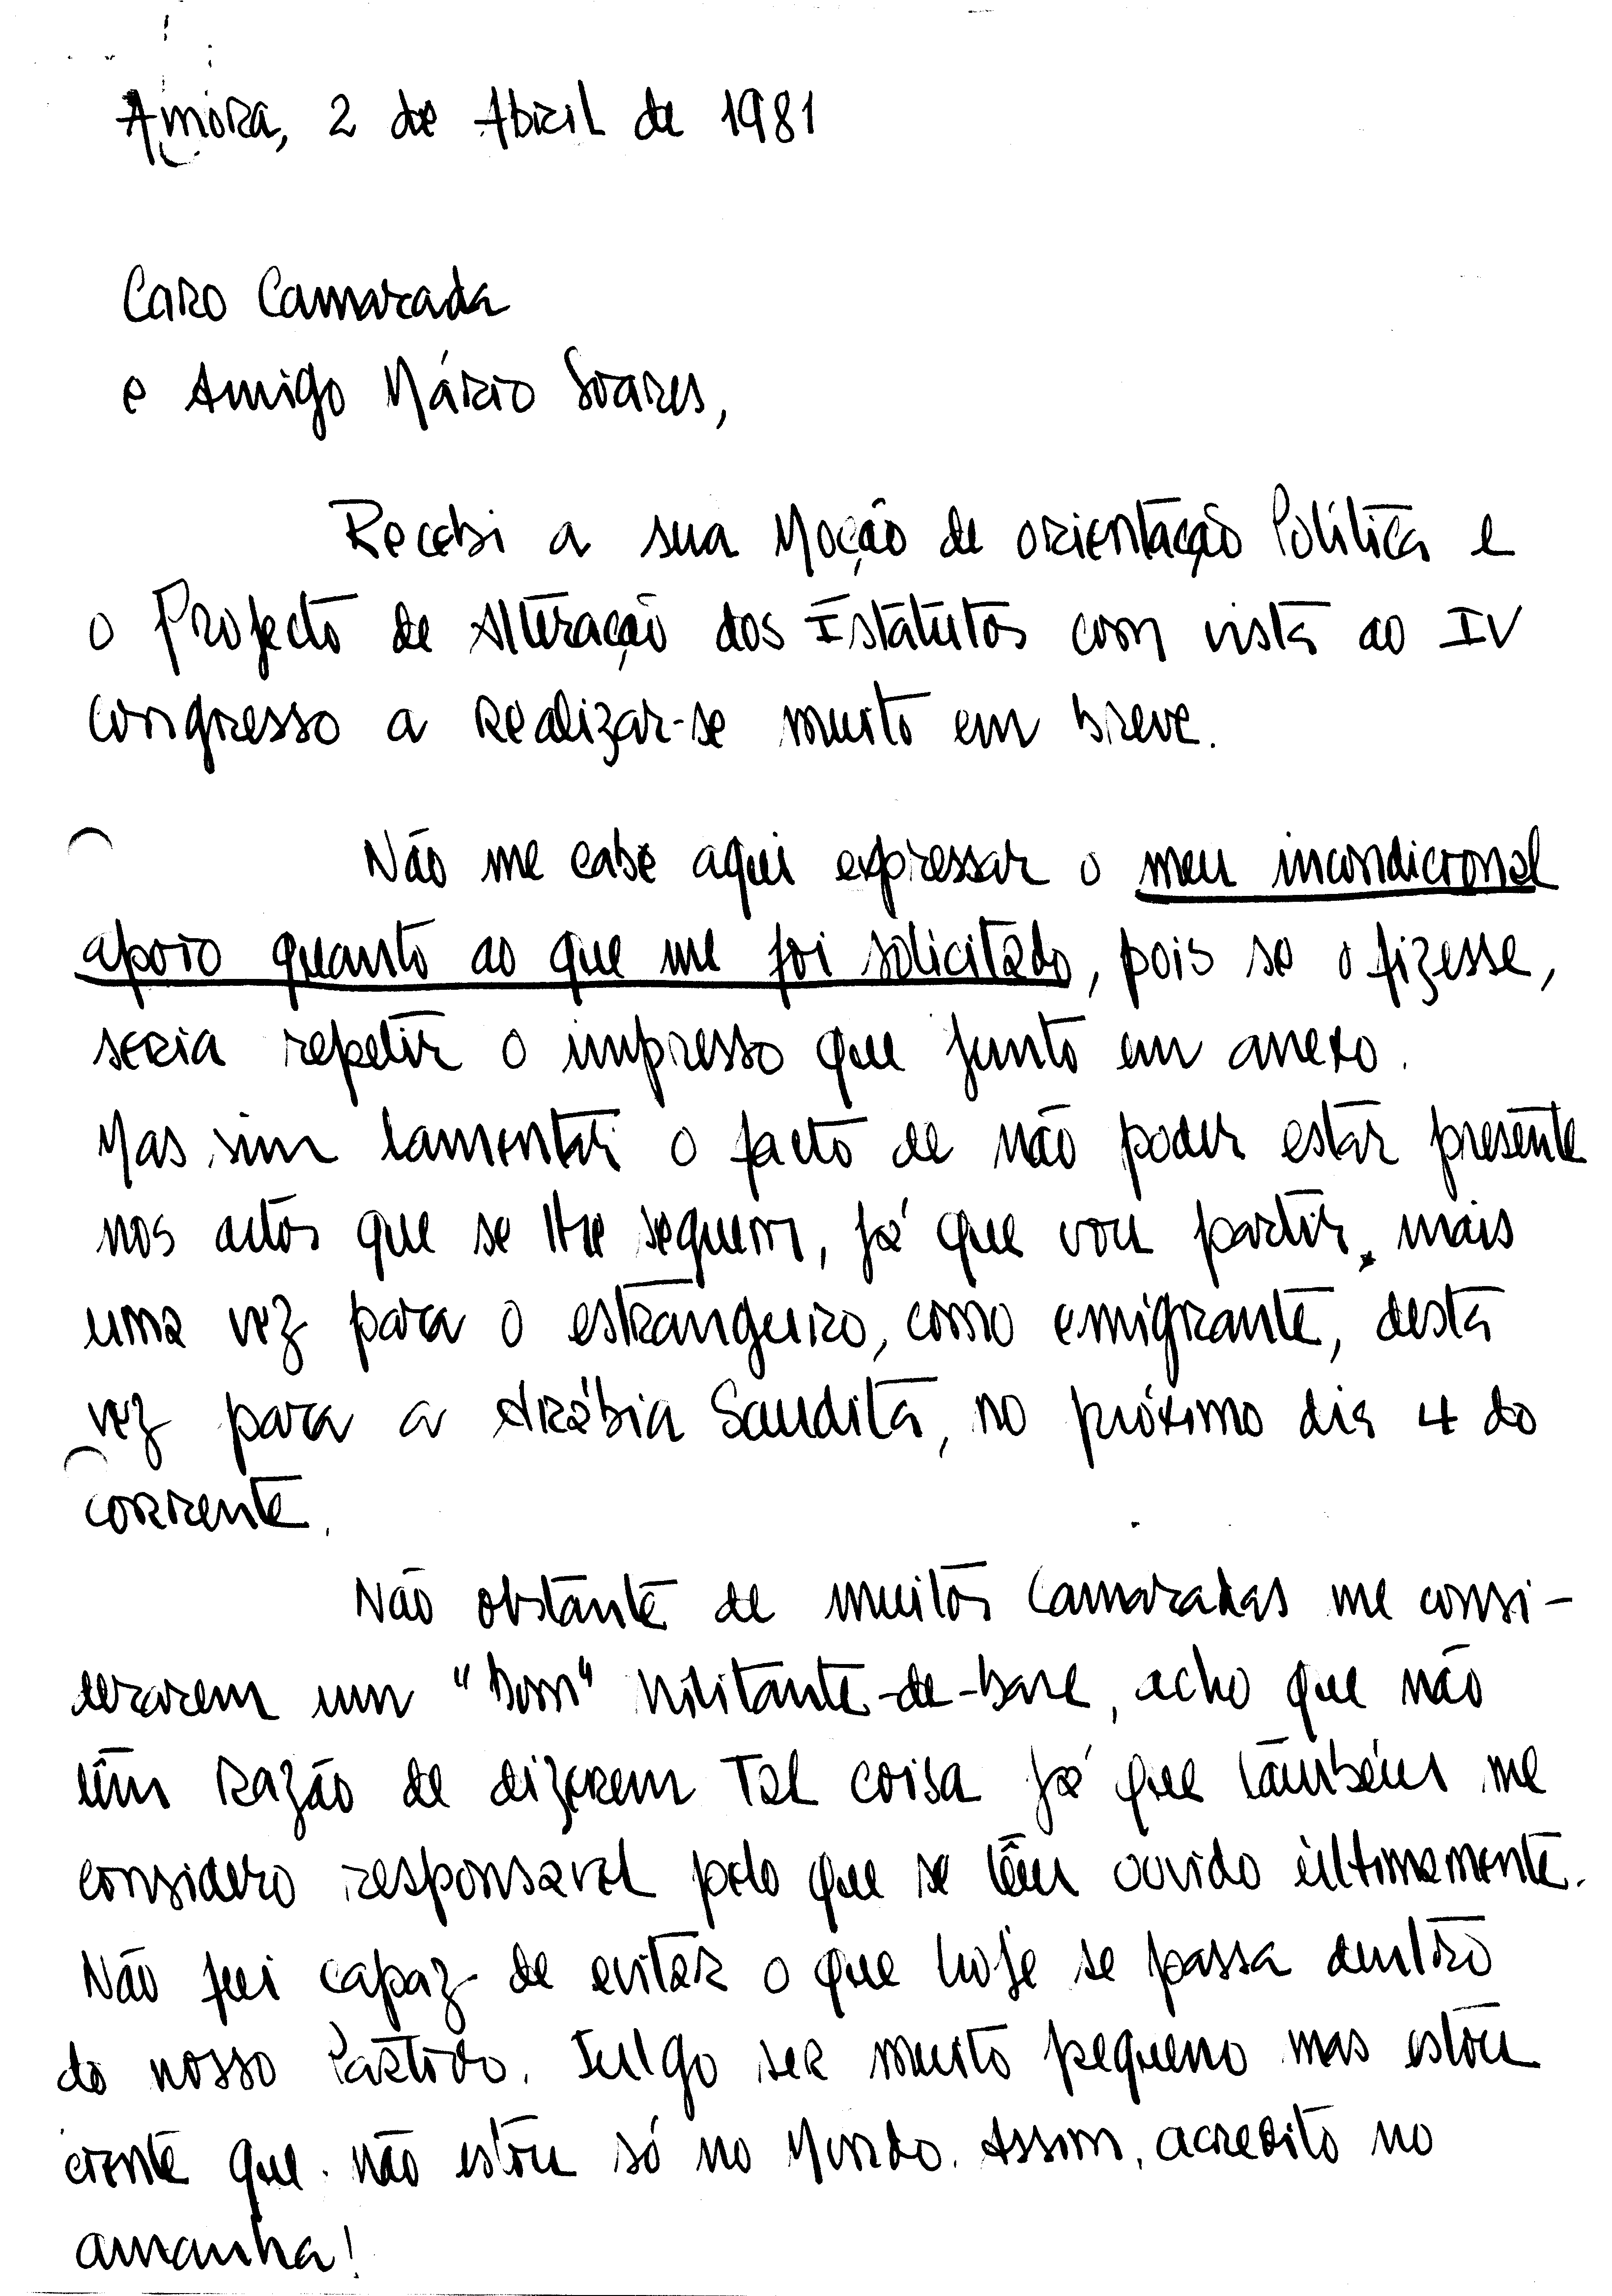 Amora, 2 de Abril de 1981
Caro Camarada
e Amigo Mário Soares,
Recebi a sua Moção de orientação Política e
o Projecto de Alteração dos Estatutos com vista ao IV
congresso a realizar-se muito em breve.
Não me cabe aqui expressar o meu incondicional
apoio quanto ao que me foi solicitado, pois se o fizesse,
seria repetir o impresso que junto em anexo.
Mas sim lamentar o facto de não poder estar presente
nos actos que se lhe seguem, já que vou partir, mais
uma vez para o estrangeiro, como emigrante, desta
vez para a Arábia Saudita, no próximo dia 4 do
corrente.
Não obstante de muitos Camaradas me consi-
derarem um "bom" militante-de-base, acho que não
têm razão de dizerem tal coisa já que também me
considero responsavel pelo que se têm ouvido últimamente.
Não fui capaz de evitar o que hoje se passa dentro
do nosso Partido. Julgo ser muito pequeno mas estou
ciente que não estou só no Mundo. Assim, acredito no
amanha!